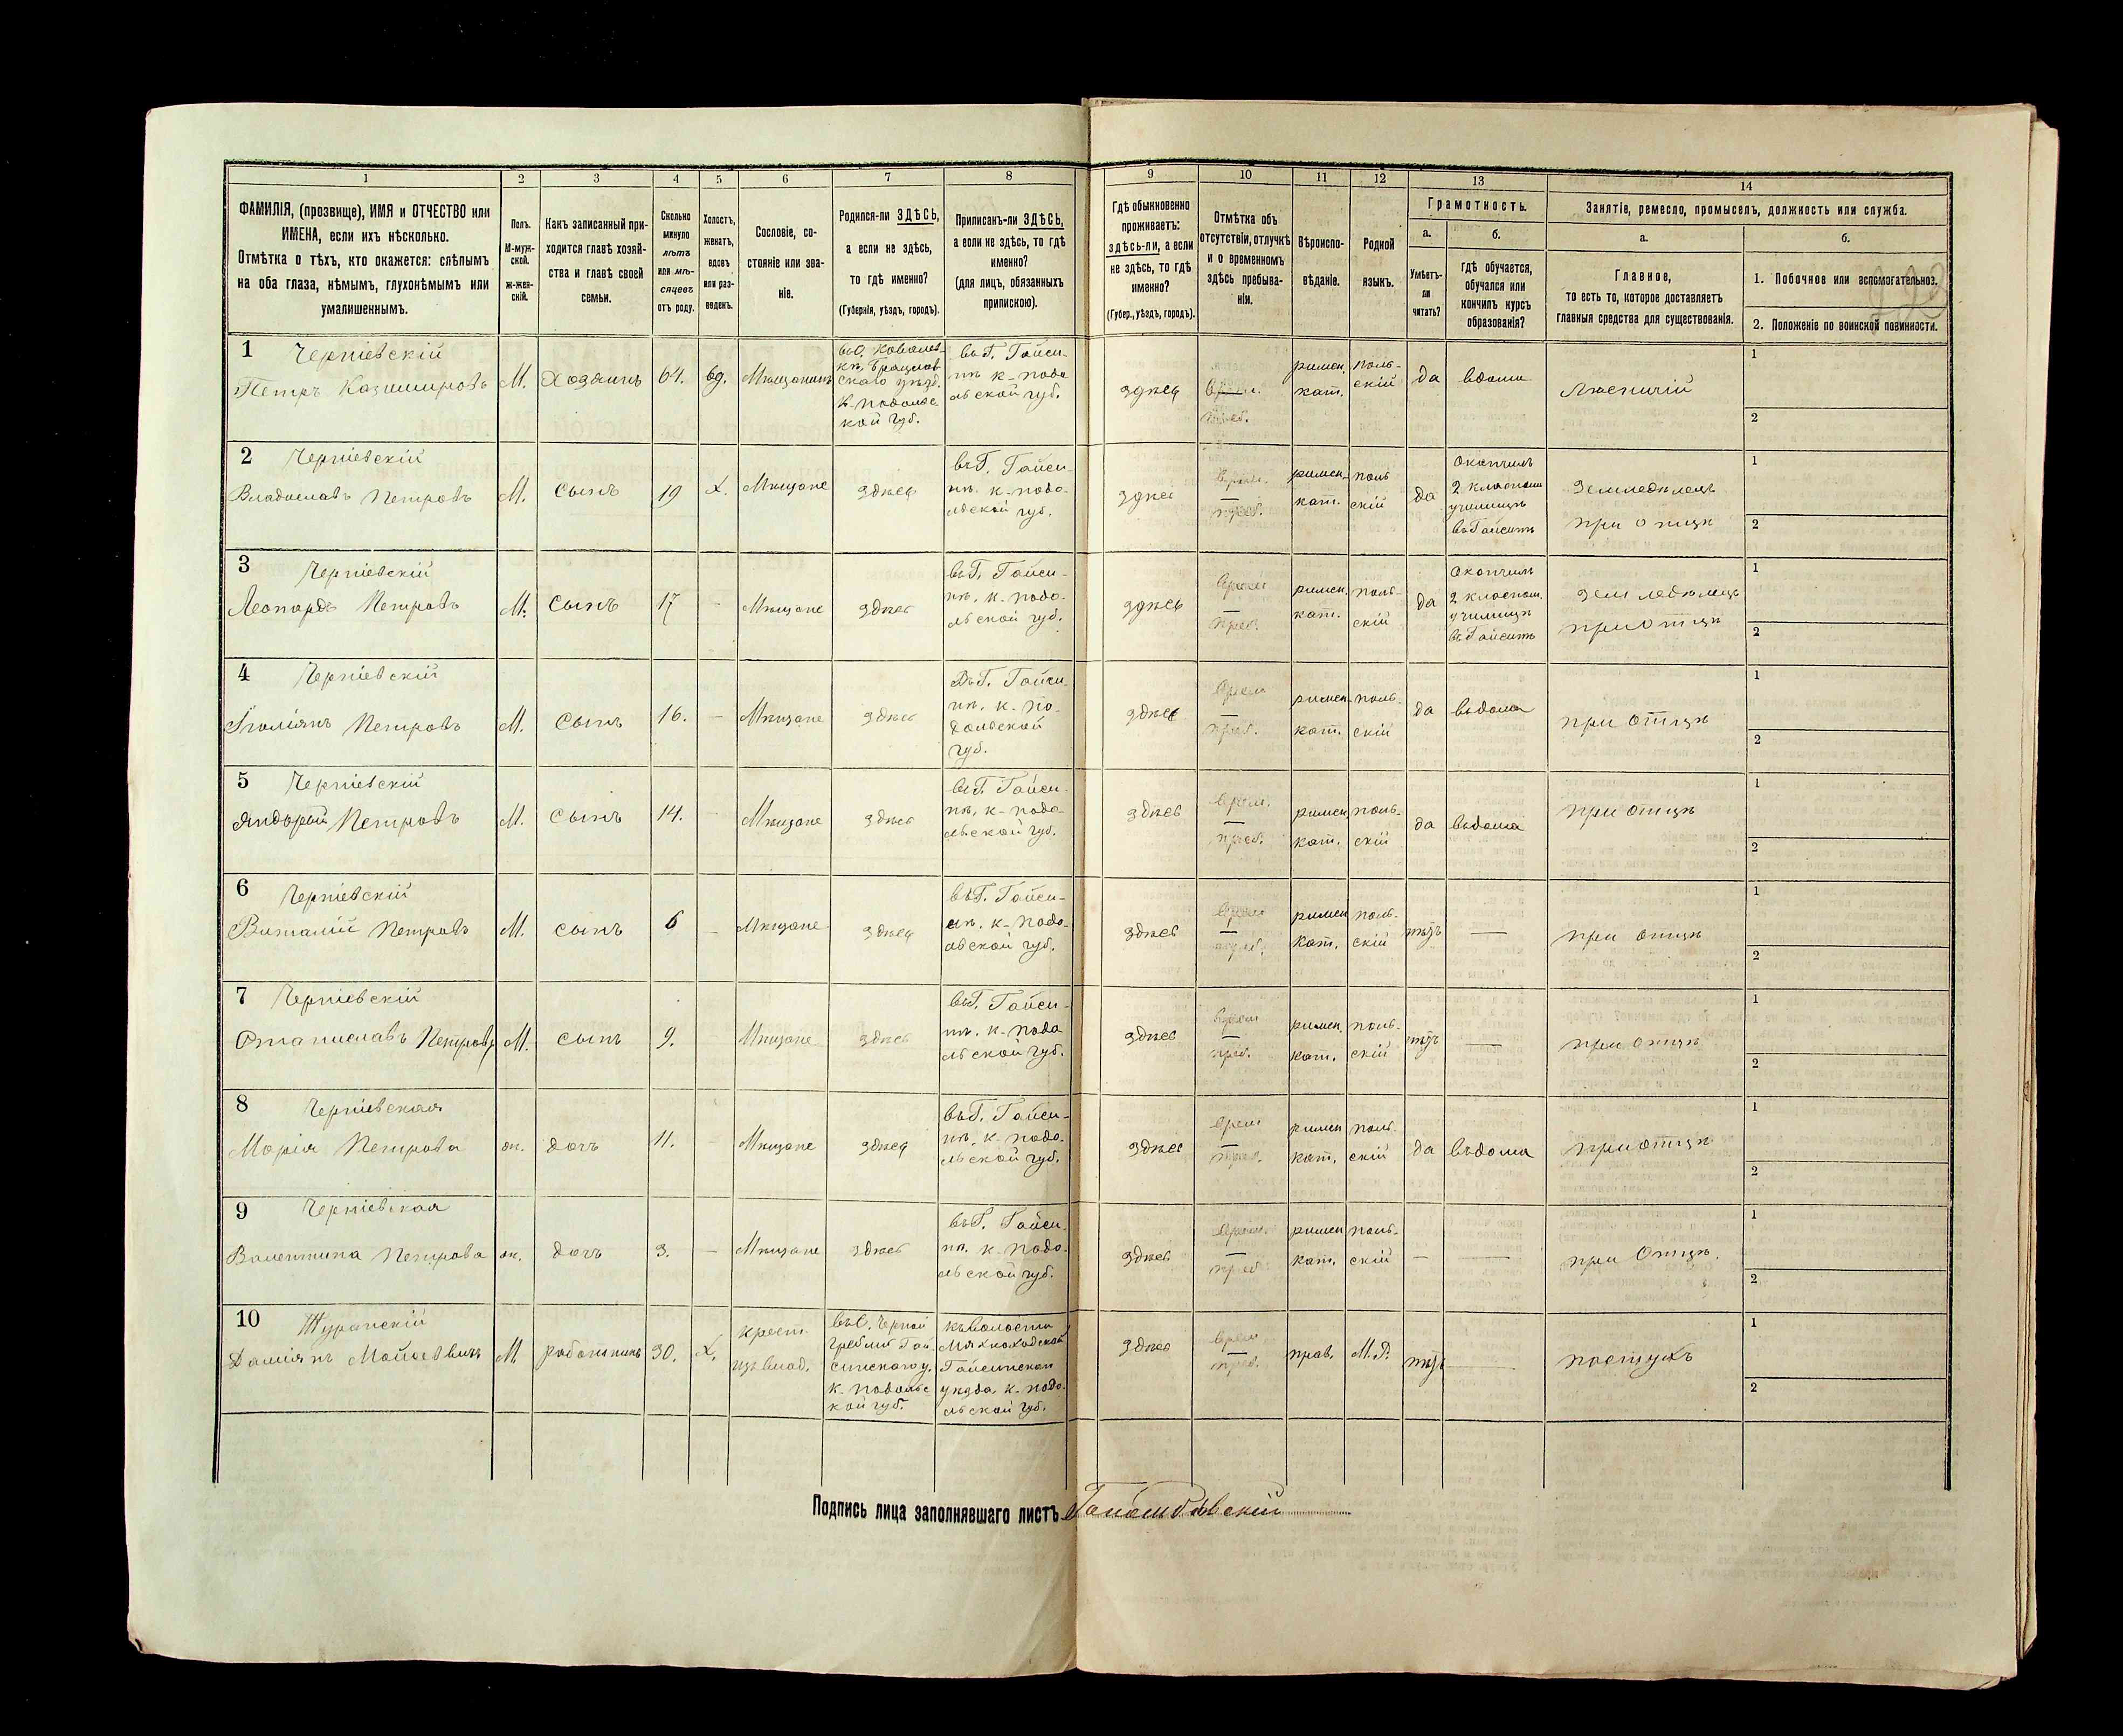 1
2
3
4
5
6
7
8
9
10
11
12
13
14
ФАМИЛІЯ, (прозвище), ИМЯ и ОТЧЕСТВО или
ИМЕНА, если ихъ нѣсколько.
Отмѣтка о тѣхъ, кто окажется: слѣпымъ
на оба глаза, нѣмымъ, глухонѣмымъ или
умалишеннымъ.
Полъ.
М-муж-
ской.
ж-жен-
скій.
Какъ записанный при-
ходится главѣ хозяй-
ства и главѣ своей
семьи.
Сколько
минуло
лѣтъ
или мѣ-
сяцевъ
отъ роду.
Холостъ,
женатъ,
вдовъ
или раз-
веденъ.
Сословіе, со-
стояніе или зва-
ніе.
Родился-ли ЗДѢСЬ,
а если не здѣсь,
то гдѣ именно?
(Губернія, уѣздъ, городъ).
Приписанъ-ли ЗДѢСЬ,
а если не здѣсь, то гдѣ
именно?
(для лицъ, обязанныхъ
припискою).
Гдѣ обыкновенно
проживаетъ:
здѣсь-ли, а если
не здѣсь, то гдѣ
именно?
(Губер., уѣздъ, городъ).
Отмѣтка объ
отсутствіи, отлучкѣ
и о временномъ
здѣсь пребыва-
ніи.
Вѣроиспо-
вѣданіе.
Родной
языкъ.
Грамотность.
а.
Умѣетъ-
ли
читать?
б.
гдѣ обучается,
обучался или
кончилъ курсъ
образованія?
Занятіе, ремесло, промыселъ, должность или служба.
а.
Главное,
то есть то, которое доставляетъ
главныя средства для существованія.
б.
1. Побочное или вспомогательное.
2. Положеніе по воинской повинности.
1 Черніевскій
Петръ Казимировъ
М.
Хозяинъ
64.
вд.
Мѣщанинъ
въ С. Ковалев-
кѣ, Брацлав
скаго уѣзд.
К-подольс
кой губ.
въ Г. Гайси-
нѣ к-подо
льской губ.
здѣсь
врем.
преб.
римск.
кат.
поль-
скій
да
вдома
Лѣсничій
1
2
2 Черніевскій
Владиславъ Петровъ
М.
сынъ
19
Х.
Мѣщане
здѣсь
въ Г. Гайси
нѣ. к-подо-
льской губ.
здѣсь
преб.
римск.
кат.
поль
скій
да
Окончилъ
2 классное
училище
въ Гайсинѣ
Земледѣлецъ
при отцѣ
1
2
3 Черніевскій
Леонардъ Петровъ
М.
сынъ
17
-
Мѣщане
здѣсь
въ Г. Гайси-
нѣ, к-подо-
льской губ.
здѣсь
врем
преб.
римск.
кат.
поль-
скій
да
Окончилъ
2 классн.
училище
въ Гайсинѣ
Земледѣлецъ
при отцѣ
1
2
4 Черніевскій
Юліянъ Петровъ
М.
сынъ
16.
-
Мѣщане
здѣсь
Въ Г. Гайси-
нѣ, к-по-
дольской
губ.
здѣсь
врем
преб.
римск.
кат.
поль-
скій
да
въдома
при отцѣ
1
2
5 Черніевскій
Андрей Петровъ
М.
сынъ
14.
-
Мѣщане
здѣсь
въ Г. Гайси-
нѣ, к-подо-
льской губ.
здѣсь
врем.
преб.
римск
кат.
поль-
скій
да
въдома
при отцѣ
1
2
6 Черніевскій
Виталій Петровъ
М.
сынъ
6
-
Мѣщане
здѣсь
въ Г. Гайси-
нѣ. к-подо-
льской губ.
здѣсь
врем
преб.
римск
кат.
поль-
скій
нѣтъ
—
при отцѣ
1
2
7 Черніевскій
Станиславъ Петровъ
М.
сынъ
9.
Мѣщане
здѣсь
въ Г. Гайси-
нѣ. к-подо
льской губ.
здѣсь
врем
преб.
римск.
кат.
поль-
скій
нѣтъ
—
при отцѣ
1
2
8 Черніевская
Марія Петрова
ж.
дочь
11.
-
Мѣщане
здѣсь
въ Г. Гайси-
нѣ, к-подо-
льской губ.
здѣсь
врем
преб.
римск
кат.
поль-
скій
да
въдома
при отцѣ
1
2
9 Черніевская
Валентина Петрова
ж.
дочь
3.
-
Мѣщане
здѣсь
въ Г. Гайси-
нѣ. к-подо-
льской губ.
здѣсь
врем.
преб
римск
кат.
поль-
скій
—
—
при Отцѣ.
1
2
10 Туранскій
Даміянъ
М.
работникъ
30.
Х.
крест.
изъ влад.
въ С. Черной
Гребли Гай
синскаго у.
к-подольс
кой губ.
къ волости
Гайсинскаго
уѣзда, к-подо-
льской губ.
здѣсь
врем
преб.
прав.
М.Р.
нѣтъ
—
пастухъ
1
2
Подпись лица заполнявшаго листъ